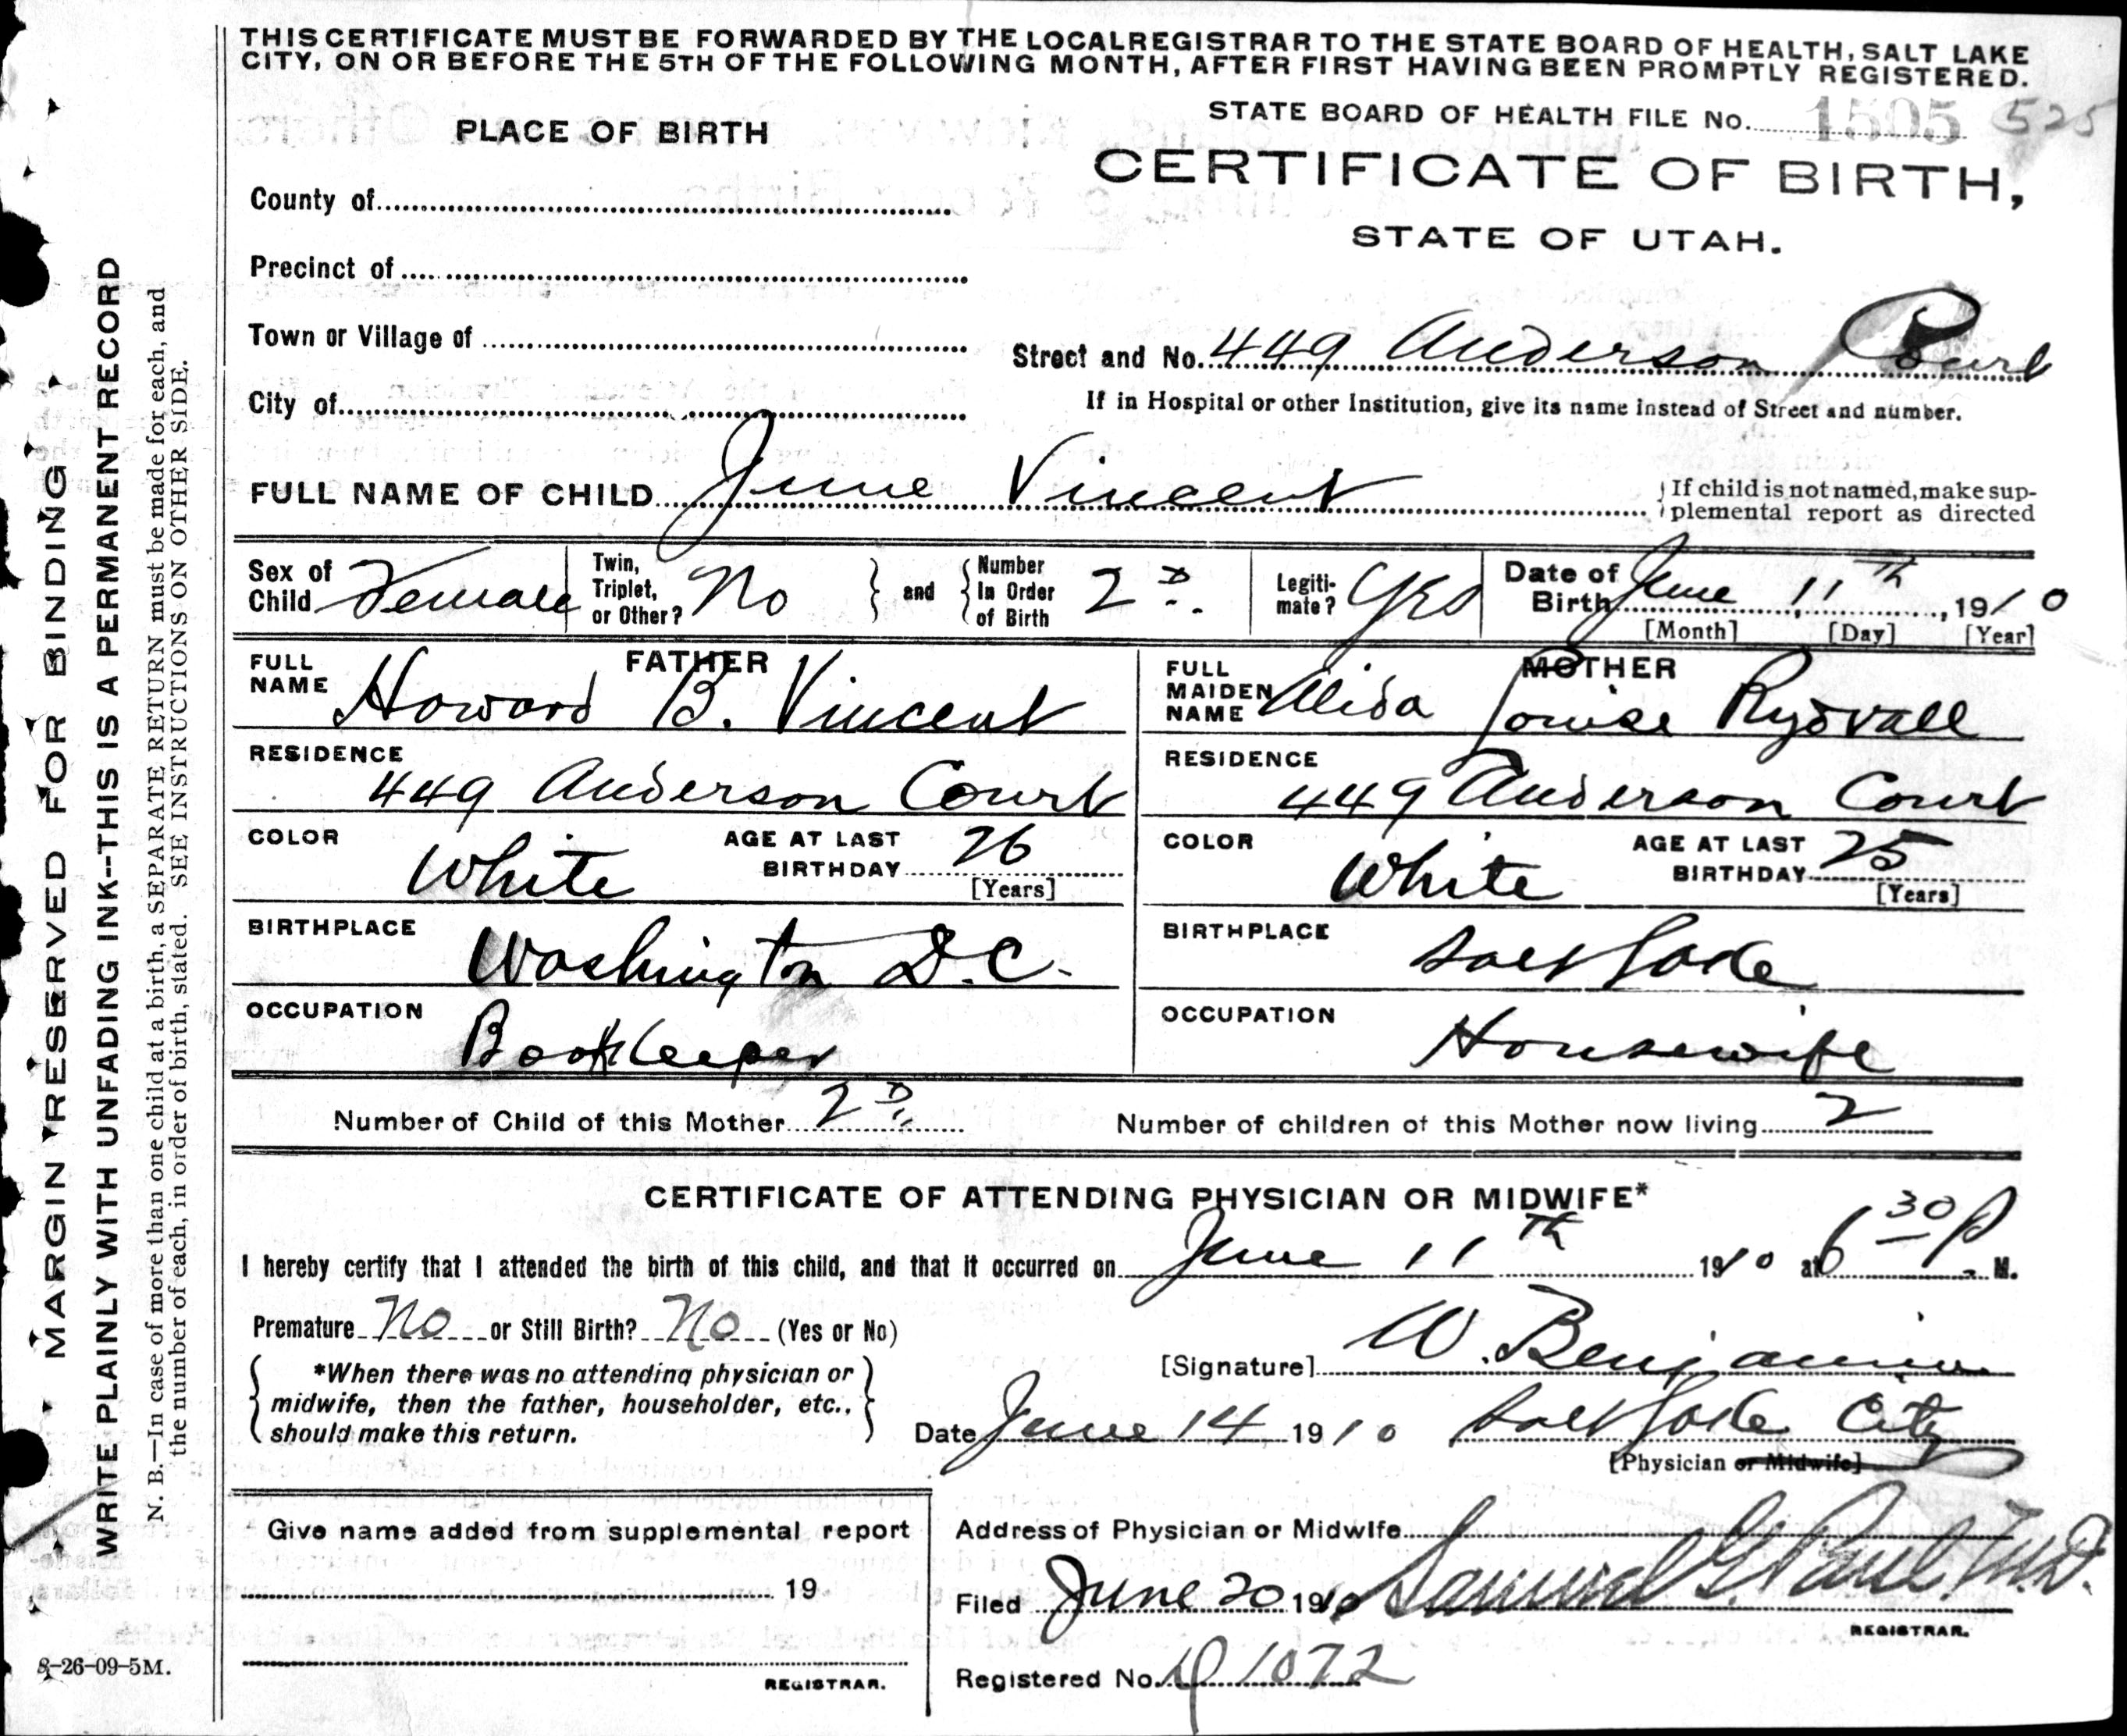 THIS CERTIFICATE MUST BE FORWARDED BY THE LOCAL REGISTRAR TO THE STATE BOARD OF HEALTH, SALT LAKE
CITY, ON OR BEFORE THE 5TH OF THE FOLLOWING MONTH, AFTER FIRST HAVING BEEN PROMPTLY REGISTERED.
STATE BOARD OF HEALTH FILE No. 1505 525
PLACE OF BIRTH
CERTIFICATE OF BIRTH,
STATE OF UTAH.
County of
Precinct of
Town or Village of
Street and No. 449 Anderson Court
City of
If in Hospital or other Institution, give its name instead of Street and number.
FULL NAME OF CHILD June Vincent
If child is not named, make sup-
plemental report as directed
Sex of Child Female
Twin, Triplet, or Other? No
and
Number In Order of Birth 2D.
Legiti-mate? Yes
Date of Birth June 11th, 1910
[Month] [Day] [Year]
FATHER
FULL NAME Howard B. Vincent
RESIDENCE
449 Anderson Court
COLOR White
AGE AT LAST BIRTHDAY 26
[Years]
BIRTHPLACE
Washington D.C.
OCCUPATION
Bookkeeper
MOTHER
FULL MAIDEN NAME Alida Louise Rydvall
RESIDENCE
449 Anderson Court
COLOR White
AGE AT LAST BIRTHDAY 25
[Years]
BIRTHPLACE
Salt Lake
OCCUPATION
Housewife
Number of Child of this Mother 2D.
Number of children of this Mother now living 2
CERTIFICATE OF ATTENDING PHYSICIAN OR MIDWIFE*
I hereby certify that I attended the birth of this child, and that it occurred on June 11th 1910 at 6 30 P. M.
Premature No or Still Birth? No (Yes or No)
[Signature] W. Benjamin
*When there was no attending physician or
midwife, then the father, householder, etc.,
should make this return.
Date June 14, 1910 Salt Lake City
[Physician or Midwife]
Give name added from supplemental report
19
REGISTRAR.
Address of Physician or Midwife
Filed June 20 1910 Samuel G. Paul M.D.
REGISTRAR.
Registered No. 1072
MARGIN RESERVED FOR BINDING
WRITE PLAINLY WITH UNFADING INK--THIS IS A PERMANENT RECORD
N. B.—In case of more than one child at a birth, a SEPARATE RETURN must be made for each, and
the number of each, in order of birth, stated. SEE INSTRUCTIONS ON OTHER SIDE.
8-26-09-5M.